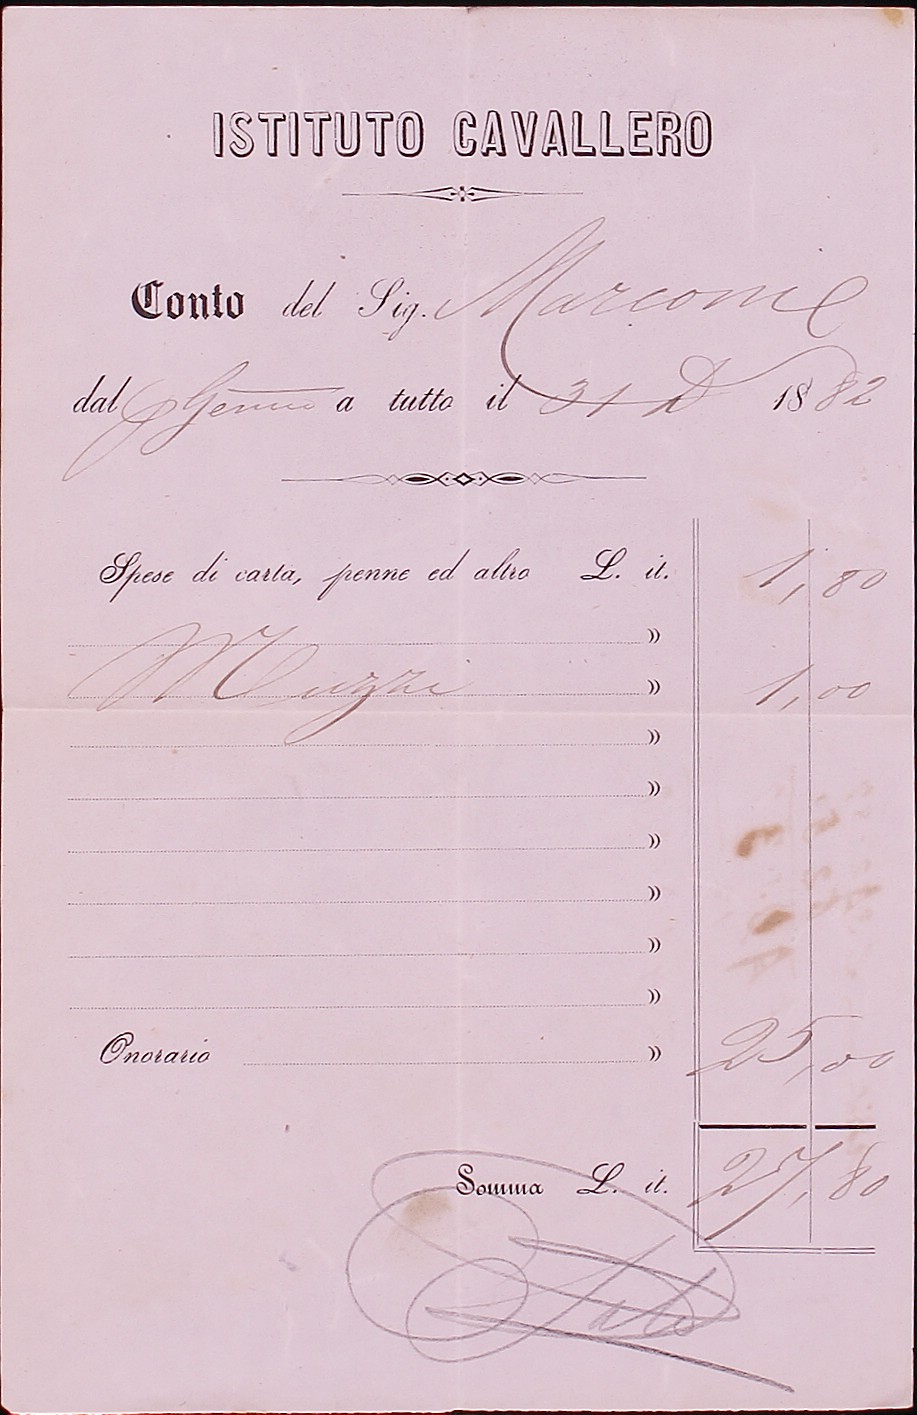 ISTITUTO CAVALLERO
Conto del Sig. Marconi
dal Genn a tutto il 31 D 1882
Spese di carta, penne ed altro L. it. 1,80
»
Muzzi » 1,00
»
»
»
»
»
»
Onorario » 25,00
Somma L. it. 27,80